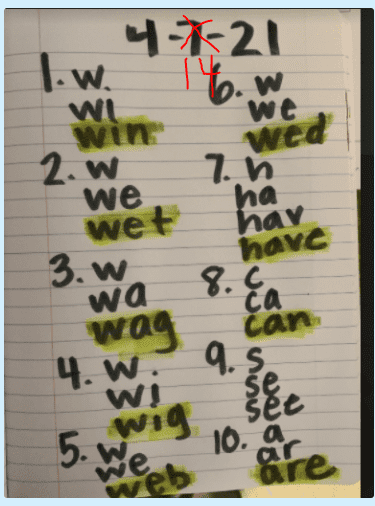 4-7-21
14
1. w.
wi
win
2. w
we
wet
3. w
wa
wag
4. w.
wi
wig
5. w
we
web
6. w
we
wed
7. h
ha
hav
have
8. c
ca
can
9. s
se
see
10. a
ar
are